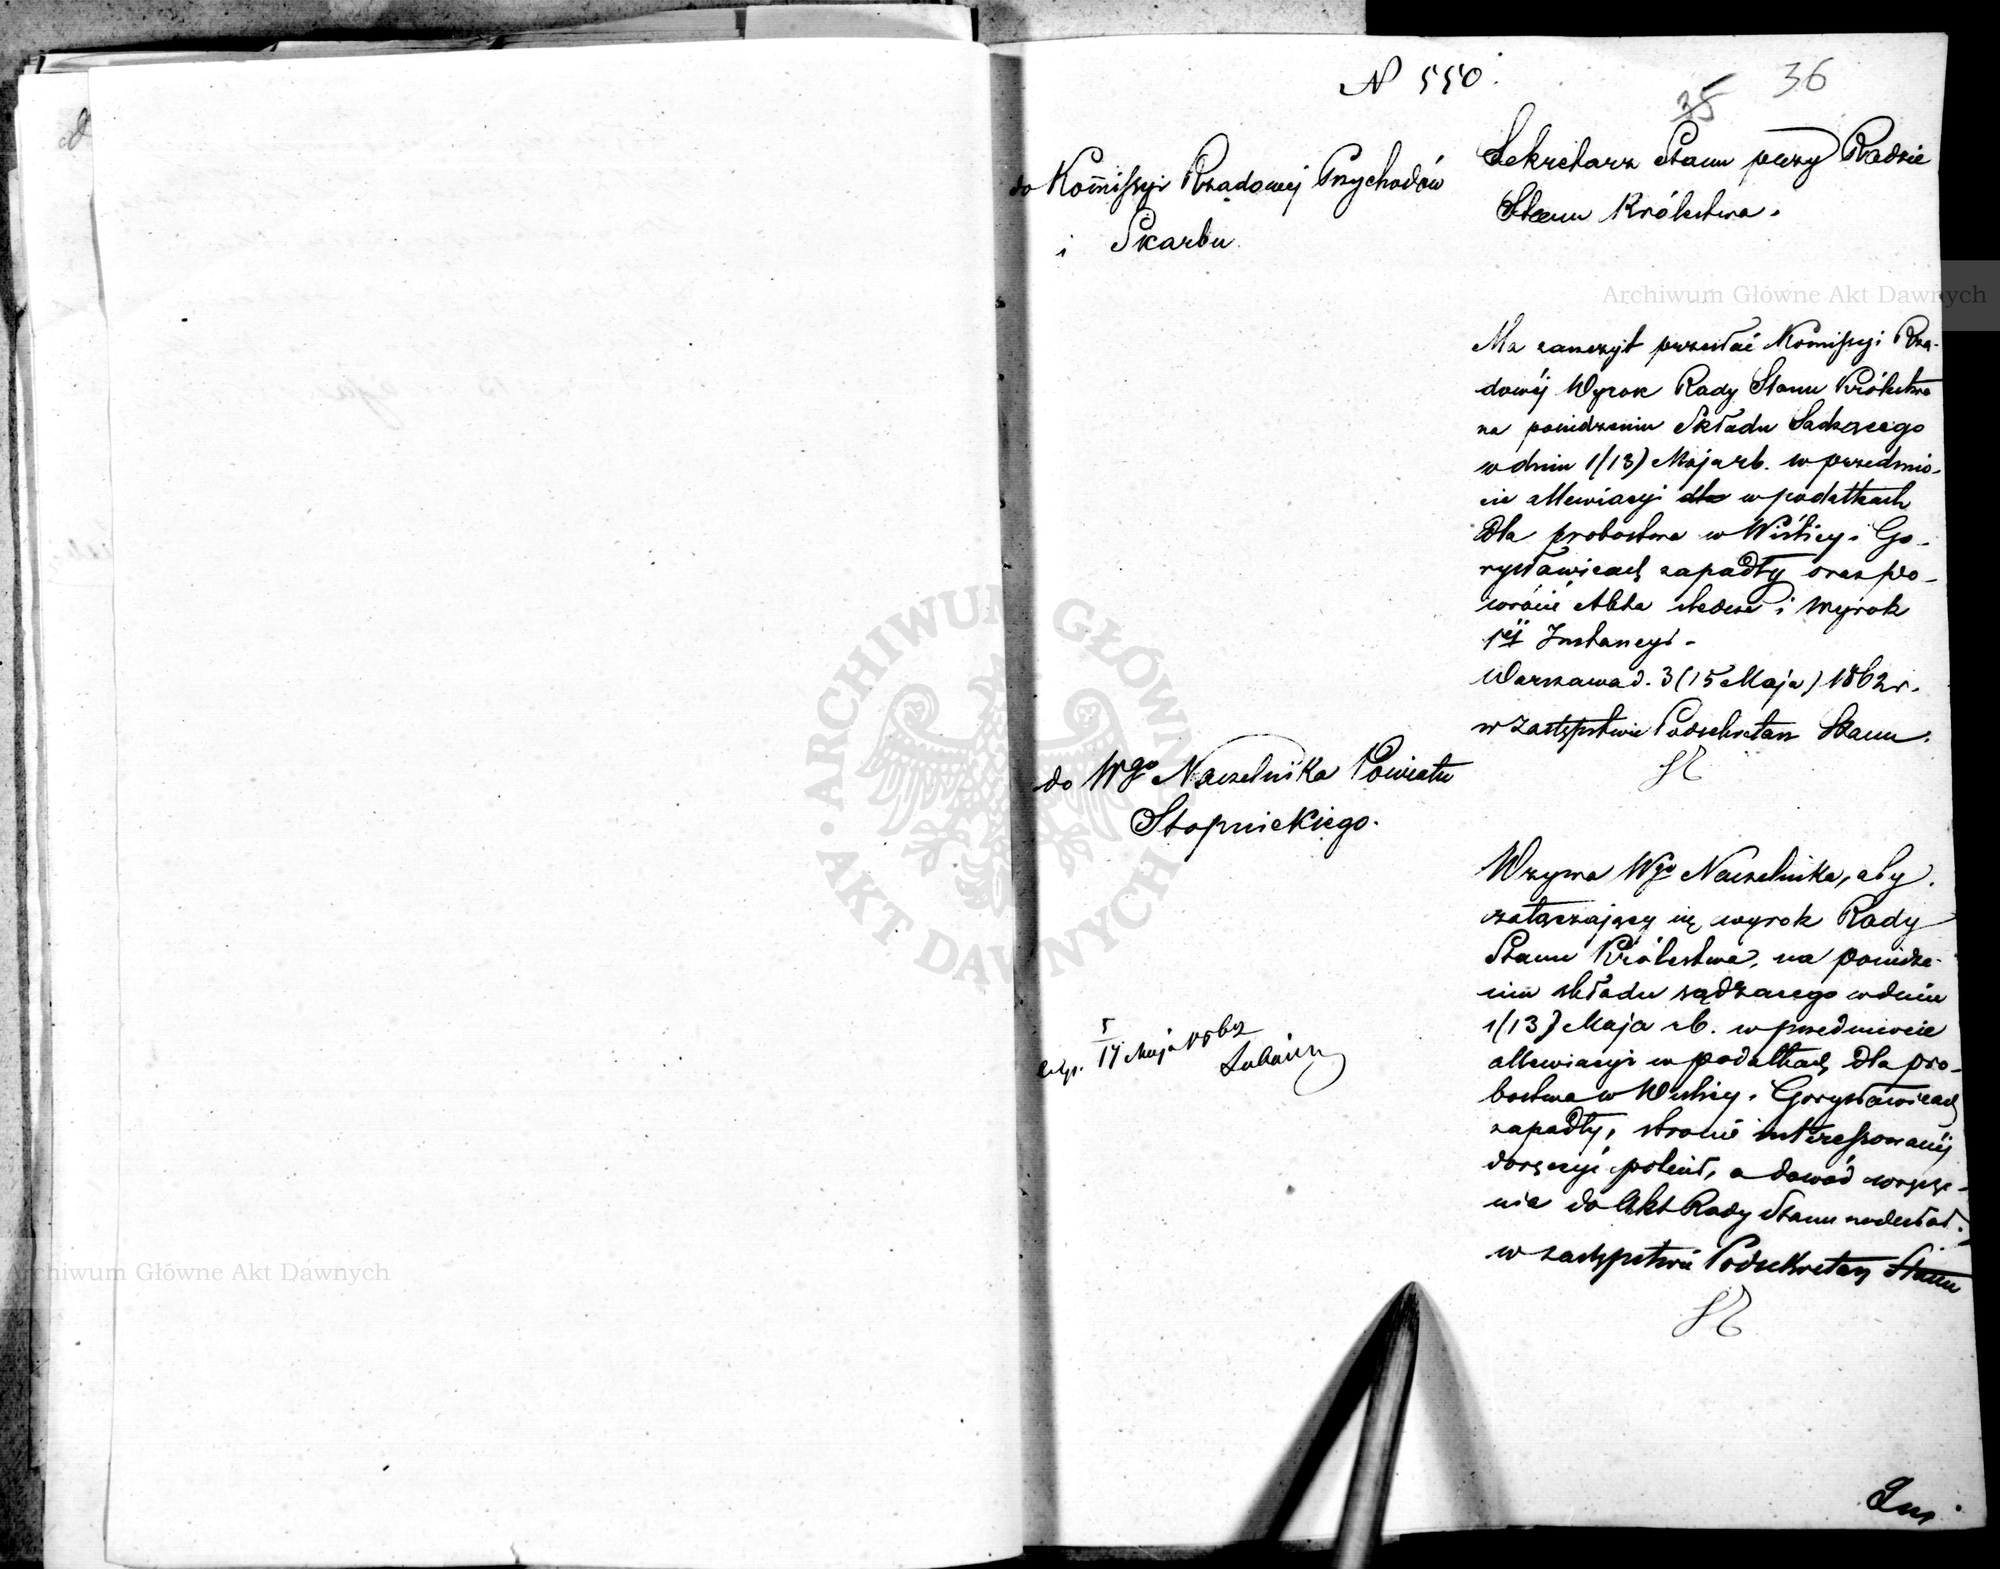 N 550.
35 36
do Kom̄issyi Rządowej Przychodów
i Skarbu
Sekretarz Stanu przy Radzie
Stanu Królestwa.
Ma zaszczyt przesłać Kommissyi Rzą-
dowéj Wyrok Rady Stanu Królestwa
na posiedzeniu Składu Sądzącego
w dniu 1/13) Maja rb. w przedmio-
cie allewiacyi dla w podatkach
dla probostwa w Wiślicy i Go-
rysławicach zapadły oraz po-
wrócić Akta sledcze i wyrok
1éj Instancyi -
Warszawa d. 3 (15 Maja) 1862 r.
w zastępstwie Podsekretarz Stanu.
do Wgo Naczelnika Powiatu
Stopnickiego.
Wzywa Wgo Naczelnika, aby
załączający się wyrok Rady
Stanu Królestwa, na posiedze-
niu składu sądzącego w dniu
1/13) Maja rb. w przedmiocie
allewiacyi w podatkach dla pro-
bostwa w Wiślicy i Gorysławicach
zapadły, stronie interessowanéj
doręczyć polecił, a dowód wręcze-
nia do Akt Rady Stanu nadesłał.
w zastępstwie Podsekretarz Stanu
exp. 5/17 Maja 1862
Archiwum Główne Akt Dawnych
Archiwum Główne Akt Dawnych
ARCHIWUM GŁÓWNE AKT DAWNYCH